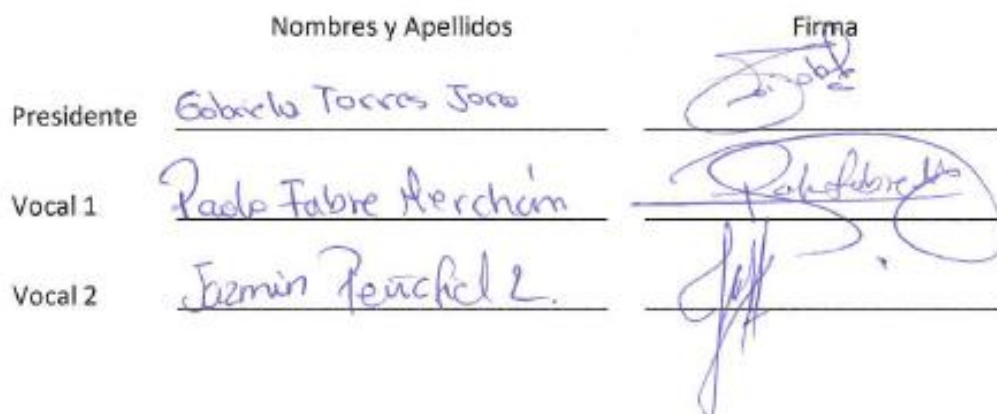 Nombres y Apellidos Firma
Presidente Gabriela Torres Jara
Vocal 1 Paolo Fabre Merchán
Vocal 2 Jazmin Peñafiel L.